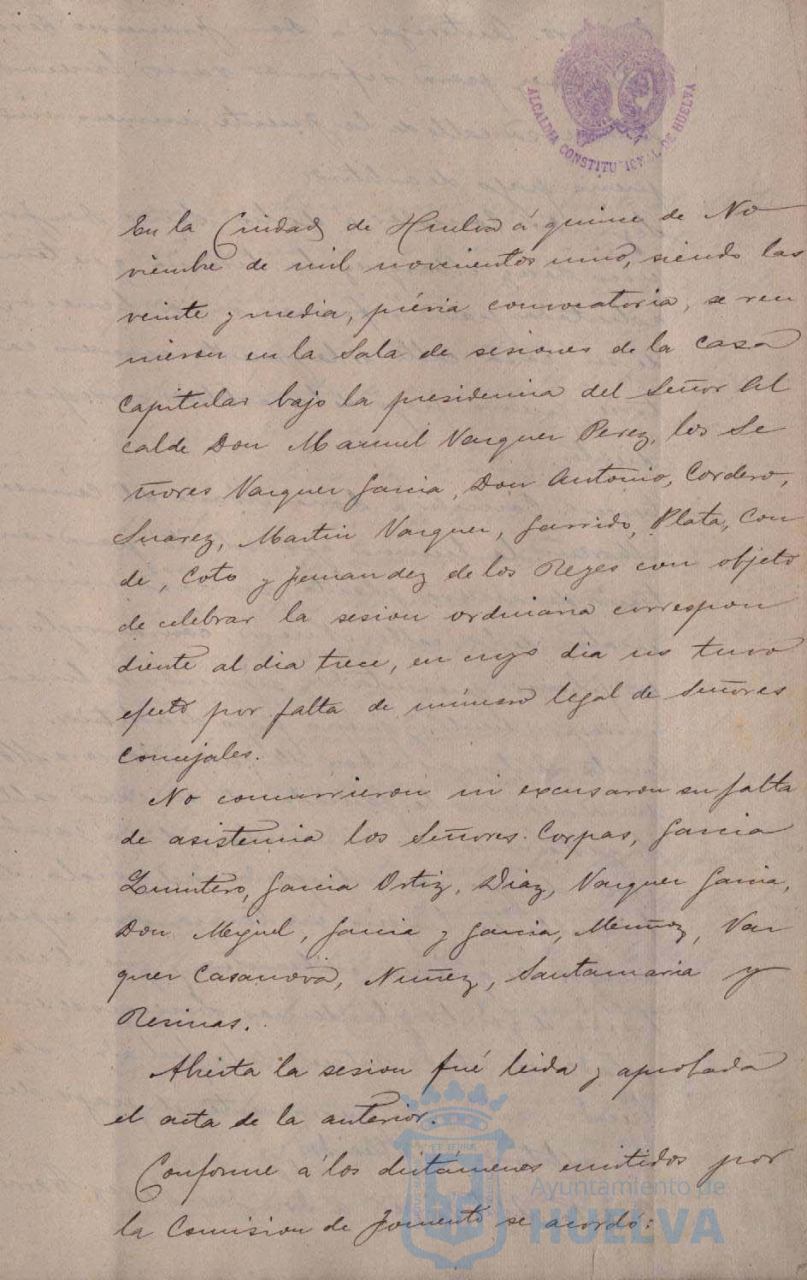 ALCALDIA CONSTITUCIONAL DE HUELVA
En la Ciudad de Huelva á quince de No
viembre de mil novecientos uno, siendo las
veinte y media, prévia convocatoria, se reu
nieron en la Sala de sesiones de la casa
capitular bajo la presidencia del Señor Al
calde Don Manuel Vazquez Perez, los Se
ñores Vazquez Garcia, Don Antonio, Cordero,
Suarez, Martin Vazquez, Garrido, Plata, Con
de, Coto y Fernandez de los Reyes con objeto
de celebrar la sesion ordinaria correspon
diente al dia trece, en cuyo dia no tuvo
efecto por falta de número legal de Señores
Concejales.
No concurrieron ni excusaron su falta
de asistencia los Señores Corpas, Garcia
Quintero, Garcia Ortiz, Diaz, Vazquez Garcia,
Don Miguel, Garcia y Garcia, Muñoz, Vaz
quez Casanova, Nuñez, Santamaria y
Resinas.
Abierta la sesion fué leida y aprobada
el acta de la anterior.
Conforme á los dictámenes emitidos por
la Comision de Fomento se acordó:
Ayuntamiento de
HUELVA